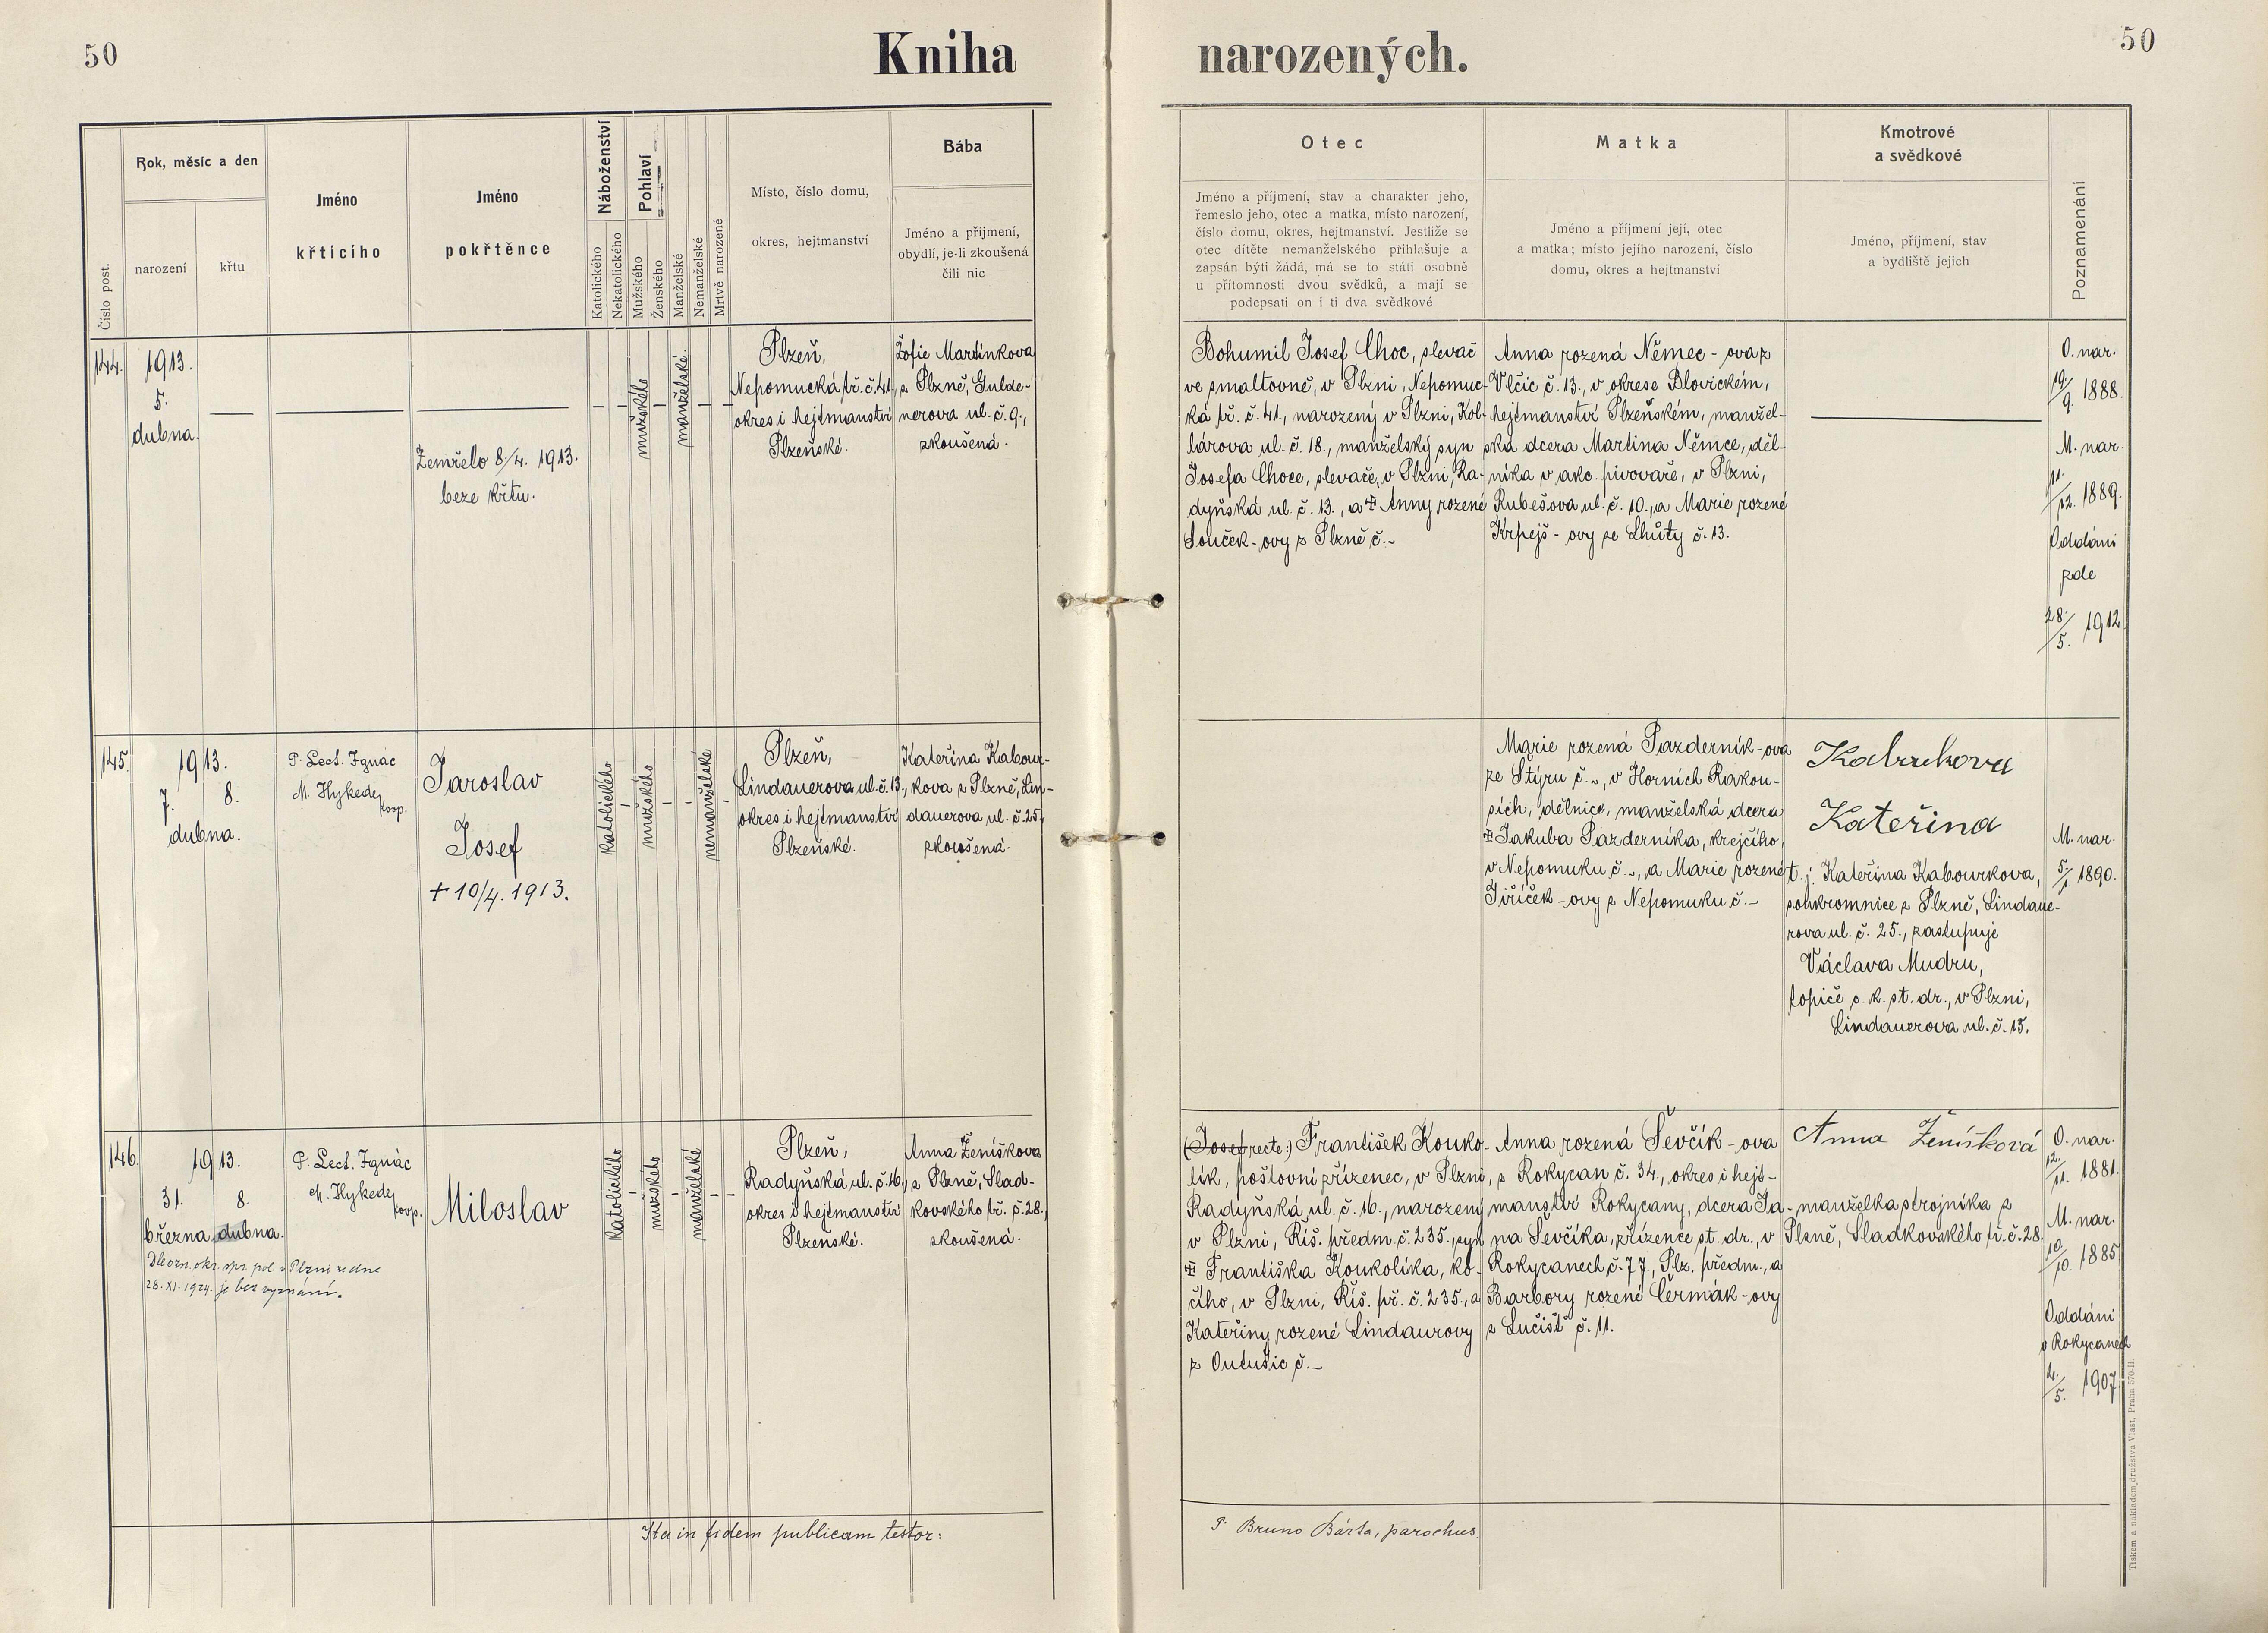 50
Kniha narozených.
50
Číslo post.
Rok, měsíc a den
narození
křtu
Jméno
křtícího
Jméno
pokřtěnce
Náboženství
Katolického
Nekatolického
Pohlaví
Mužského
Ženského
Manželské
Nemanželské
Mrtvě narozené
Místo, číslo domu,
okres, hejtmanství
Bába
Jméno a příjmení,
obydlí, je-li zkoušená
čili nic
Otec
Jméno a příjmení, stav a charakter jeho,
řemeslo jeho, otec a matka, místo narození,
číslo domu, okres, hejtmanství. Jestliže se
otec dítěte nemanželského přihlašuje a
zapsán býti žádá, má se to státi osobně
u přítomnosti dvou svědků, a mají se
podepsati on i ti dva svědkové
Matka
Jméno a příjmení její, otec
a matka; místo jejího narození, číslo
domu, okres a hejtmanství
Kmotrové
a svědkové
Jméno, příjmení, stav
a bydliště jejich
Poznamenání
144.
1913.
5.
dubna.
—
—
—
Zemřelo 8./4. 1913.
beze křtu.
mužského
manželské
Plzeň,
Nepomucká tř. č. 41.,
okres i hejtmanství
Plzeňské.
Žofie Martínkova
z Plzně, Gulde-
nerova ul. č. 9.,
zkoušená.
Bohumil Josef Choc, slevač
ve smaltovně, v Plzni, Nepomuc-
ká tř. č. 41., narozený v Plzni, Kol-
lárova ul. č. 18., manželský syn
Josefa Choce, slevače, v Plzni, Ra-
dyňská ul. č. 13., a ‡ Anny rozené
Souček-ovy z Plzně č. –
Anna rozená Němec-ova z
Vlčic č. 13., v okrese Blovickém,
hejtmanství Plzeňském, manžel-
ská dcera Martina Němce, děl-
níka v akc. pivovaře, v Plzni,
Rubešova ul. č. 10., a Marie rozené
Krpejš-ovy ze Lhůty č. 13.
—
O. nar.
19./9. 1888.
M. nar.
11./12. 1889.
Oddáni
zde
28./5. 1912.
145.
1913.
7. 8.
dubna.
P. Lect. Ignác
M. Hykede,
koop.
Jaroslav
Josef
+ 10/4. 1913.
katolického
mužského
nemanželské
Plzeň,
Lindauerova ul. č. 13.,
okres i hejtmanství
Plzeňské.
Kateřina Kabour-
kova z Plzně, Lin-
dauerova ul. č. 25.,
zkoušená.
Marie rozená Pazderník-ova
ze Štýru č. –, v Horních Rakou-
sích, dělnice, manželská dcera
‡ Jakuba Pazderníka, krejčího,
v Nepomuku č. –, a Marie rozené
Jiříček-ovy z Nepomuku č. –
Kateřina
t. j. Kateřina Kabourkova,
soukromnice z Plzně, Lindaue-
rova ul. č. 25., zastupuje
Václava Mudru,
topiče c. k. st. dr., v Plzni,
Lindauerova ul. č. 15.
M. nar.
5./1. 1890.
146.
1913.
31. 8.
března dubna.
Dle ozn. okr. spr. pol. v Plzni ze dne
28. XI. 1924. je bez vyznání.
P. Lect. Ignác
M. Hykede,
koop.
Miloslav
katolického
mužského
manželské
Plzeň,
Radyňská ul. č. 16.,
okres i hejtmanství
Plzeňské.
Anna Ženíškova
z Plzně, Slad-
kovského tř. č. 28.,
zkoušená.
(Josef recte:) František Kouko-
lík, poštovní zřízenec, v Plzni,
Radyňská ul. č. 16., narozený
v Plzni, Říš. předm. č. 235., syn
‡ Františka Koukolíka, ko-
čího, v Plzni, Říš. př. č. 235., a
Kateřiny rozené Lindaurovy
z Outušic č. –
Anna rozená Ševčík-ova
z Rokycan č. 34., okres i hejt-
manství Rokycany, dcera Ja-
na Ševčíka, zřízence st. dr., v
Rokycanech č. 77, Plz. předm., a
Barbory rozené Čermák-ovy
z Lučišť č. 11.
Anna Ženíšková
manželka strojníka z
Plzně, Sladkovského tř. č. 28.
O. nar.
12./11. 1881.
M. nar.
10./10. 1885.
Oddáni
v Rokycanech
4./5. 1907.
Ita in fidem publicam testor:
P. Bruno Bárta, parochus.
Tiskem a nakladem družstva Vlast, Praha 570-II.